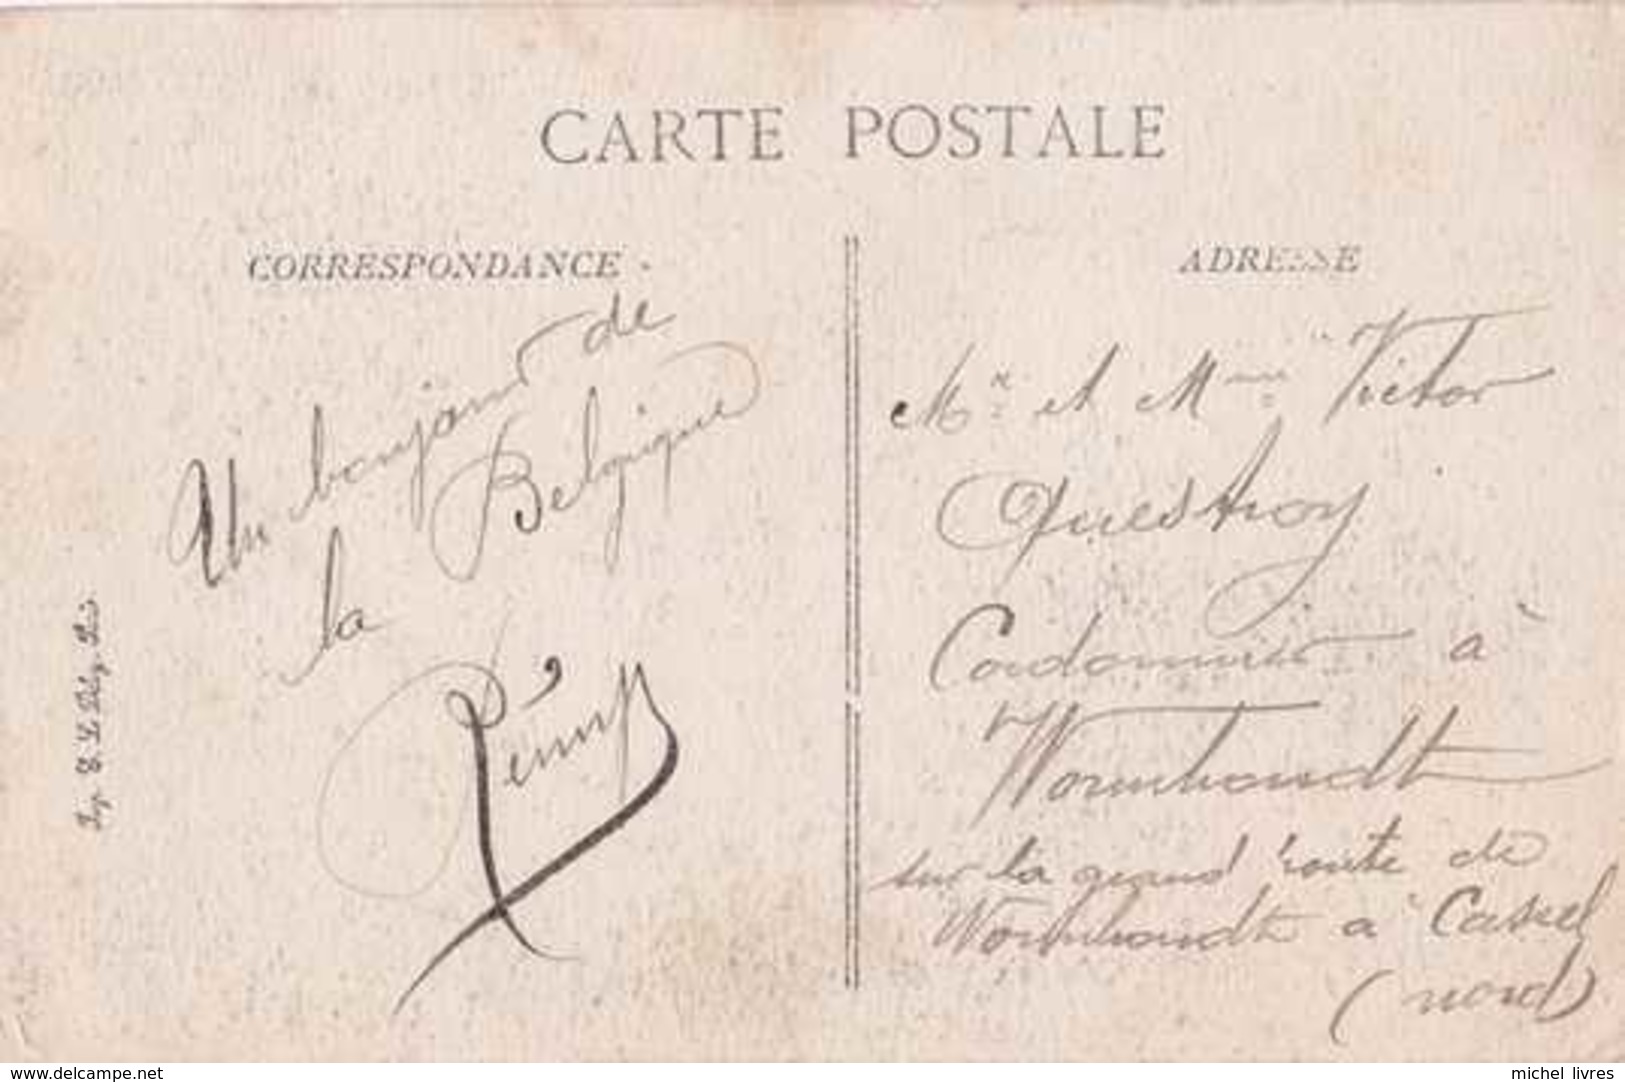 CARTE POSTALE
CORRESPONDANCE
Un bonjour de
la Belgique
ADRESSE
Mr et Mme Victor
Questroy
Cordonnier à
Wormhoudt
sur la grand route de
Wormhoudt à Cassel
(nord)
Imp. E. Le Deley, Paris
www.delcampe.net
michel livres